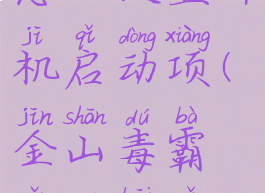 jī qǐ dòng xiàng
机启动项(
jīn shān dú bà
金山毒霸